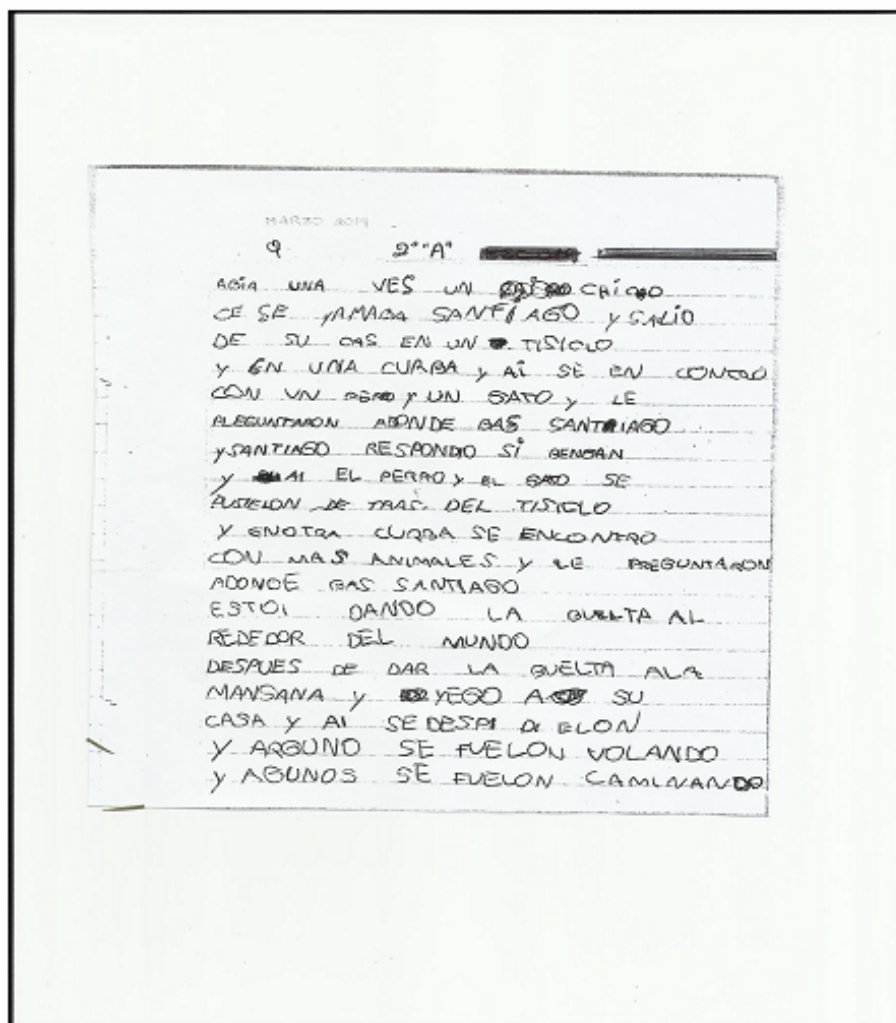 MARZO 2014
9 2° "A"
ABIA UNA VES UN CHICHO
CE SE YAMABA SANTIAGO Y SALIO
DE SU CAS EN UN TISICLO
Y EN UNA CURBA Y AI SE EN CONTRO
CON UN PERO Y UN GATO Y LE
PLEGUNTARON ADONDE BAS SANTIAGO
Y SANTIAGO RESPONDIO SI BENGAN
Y AI EL PERRO Y EL GATO SE
PUSIELON DE TRAS DEL TISICLO
Y ENOTRA CURBA SE ENCONTRO
CON MAS ANIMALES Y LE PREGUNTARON
ADONDE BAS SANTIAGO
ESTOI DANDO LA BUELTA AL
REDEDOR DEL MUNDO
DESPUES DE DAR LA BUELTA ALA
MANSANA Y YEGO A SU
CASA Y AI SE DESPI DI ELON
Y ARGUNO SE FUELON VOLANDO
Y AGUNOS SE FUELON CAMINANDO